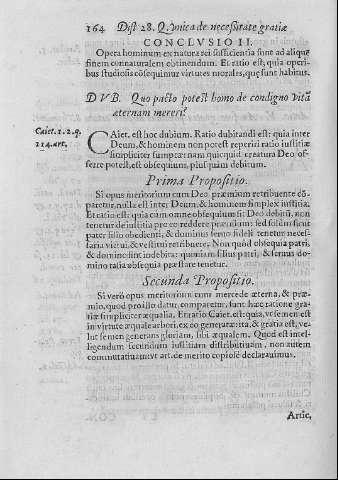 164 Dist 28. Q. Vnica de necessitate gratiæ
CONCLVSIO II.
Opera hominum ex natura sei sufficientia sunt ad aliquẽ
finem connaturalem obtinendum. Et ratio est, quia operi-
bus studiosis cõsequimur virtutes morales, quę sunt habitus.
DVB. Quo pacto potest homo de condigno vitã
æternam mereri?
Caiet. 1. 2. q.
114. art.
CAiet. est hoc dubium. Ratio dubitandi est: quia inter
Deum, & hominem non potest reperiri ratio iustitiæ
simpliciter sumptæ: nam quicquid creatura Deo, of-
fert potest, est obsequium, plus quàm debitum.
Prima Propositio.
Si opus meritorium cum Deo præmium retribuente cõ-
paretur, nulla est inter Deum, & hominem simplex iustitia.
Et ratio est: quia cùm omne obsequium sit Deo debitũ, non
tenetur de iustitia pro eo reddere præmium: sed solùm sicut
pater obedienti filio, & dominus fideli seruo tenetur neces-
saria victui, & vestitui retribuere. Non quòd obsequia patri,
& domino sint indebita: quoniam filius patri, & seruus do-
mino talia obsequia præstare tenetur.
Secunda Propositio.
Si verò opus meritorium cum mercede æterna, & præ-
mio, quod pro illo datur, comparetur, sunt hæc ratione gra-
tiæ simpliciter æqualia. Et ratio Caiet. est: quia, vt semen est
in virtute æquale arbori, ex eo generatæ: ita, & gratia est, ve-
lut semen generans gloriam, sibi æqualem. Quod est intel-
ligendum secundum iustitiam distributiuam, non autem
commutatiuam, vt art. de merito copiosè declarauimus.
Artic.